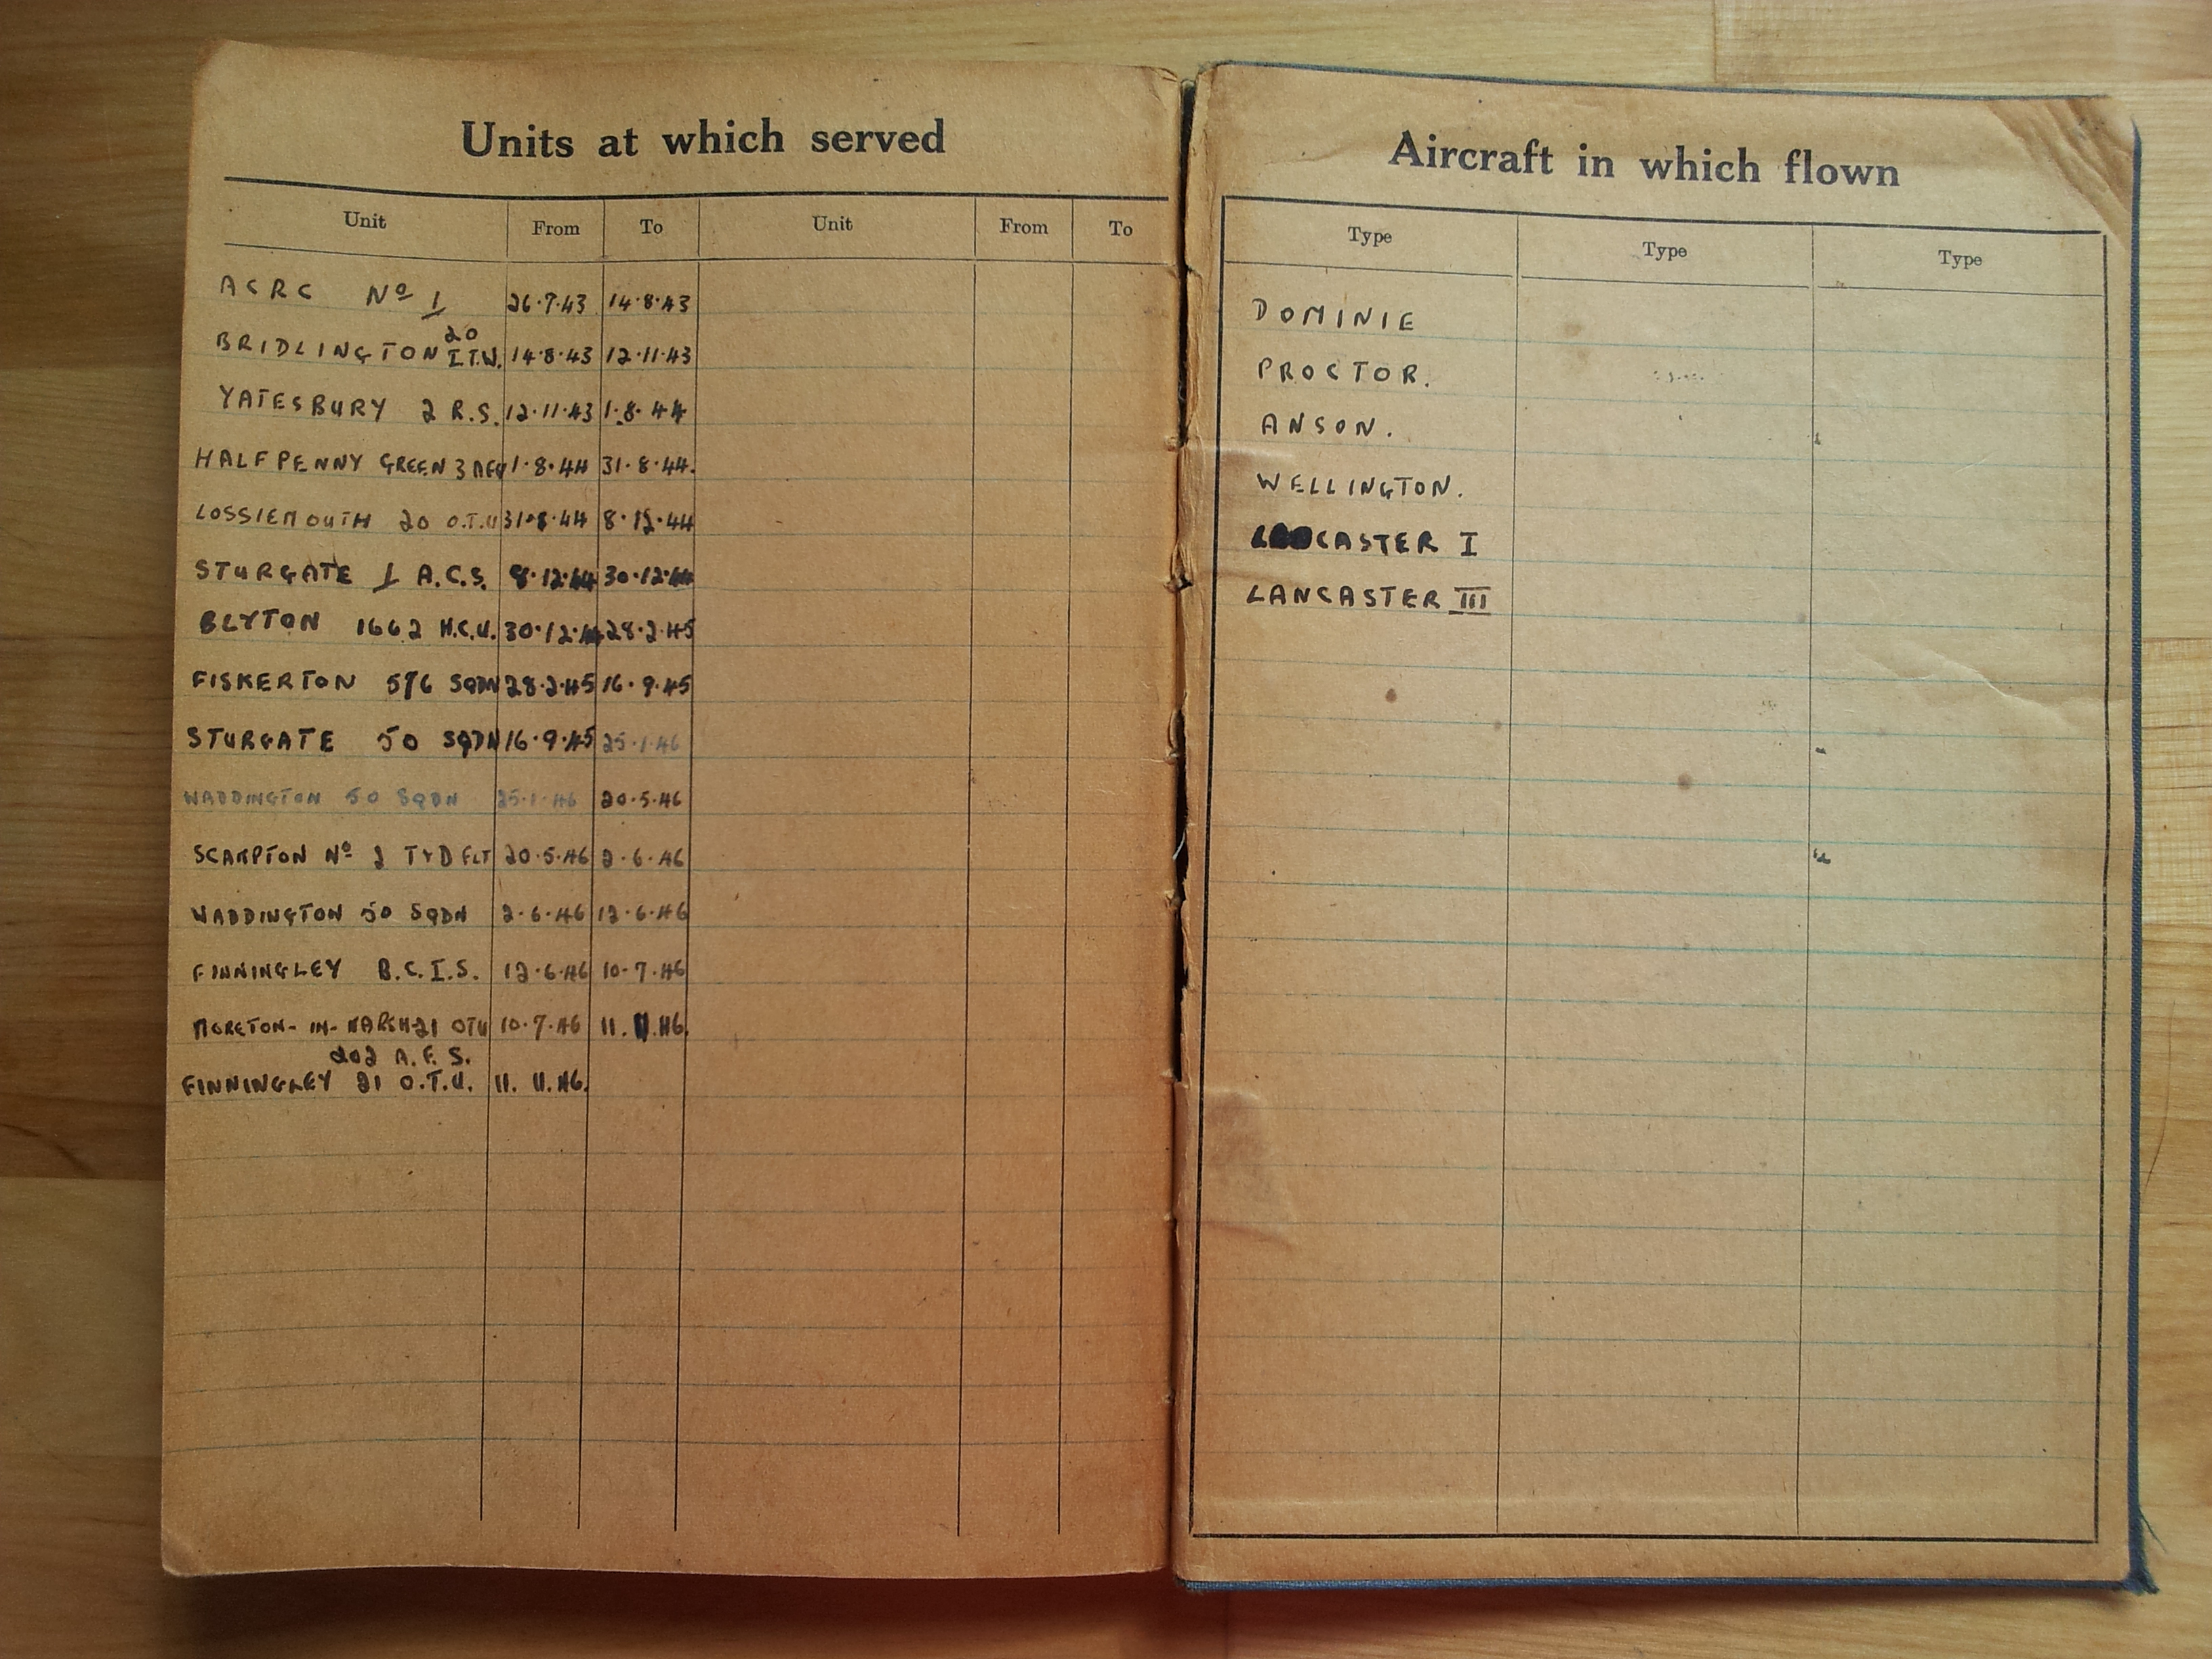 Units at which served
Unit From To Unit From To
ACRC No 1 26.7.43 14.8.43
20
BRIDLINGTON I.T.W. 14.8.43 12.11.43
YATESBURY 2 R.S. 12.11.43 1.8.44
HALFPENNY GREEN 3 1.8.44 31.8.44.
LOSSIEMOUTH 20 O.T.U 31.8.44 8.12.44
STURGATE 1 A.C.S. 8.12.44 30.12.44
BLYTON 1662 H.C.U. 30.12.44 28.2.45
FISKERTON 576 SQDN 28.2.45 16.9.45
STURGATE 50 SQDN 16.9.45 25.1.46
WADDINGTON 50 SQDN 25.1.46 20.5.46
SCAMPTON No 2 FLT 20.5.46 2.6.46
WADDINGTON 50 SQDN 2.6.46 12.6.46
FINNINGLEY B.C.I.S. 12.6.46 10.7.46
MORETON-IN-MARSH 21 OTU 10.7.46 11.11.46.
202 A.F.S.
FINNINGLEY 21 O.T.U. 11.11.46.
Aircraft in which flown
Type Type Type
DOMINIE
PROCTOR.
ANSON.
WELLINGTON.
LANCASTER I
LANCASTER III